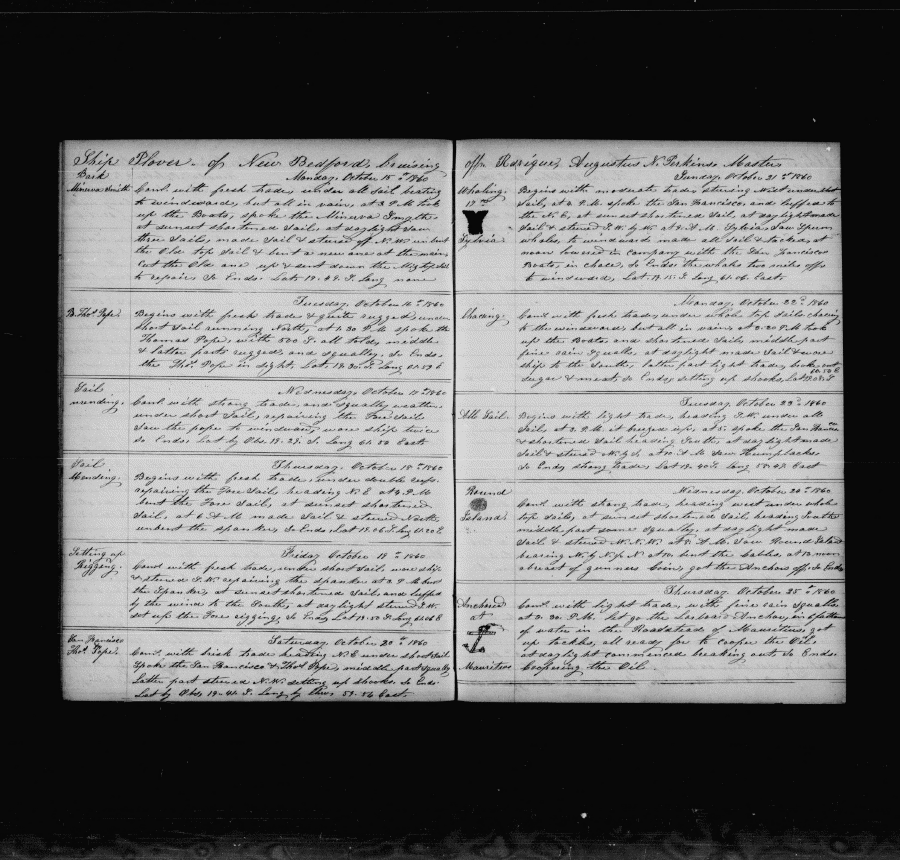 Ship Plover of New Bedford, Cruising
Bark
Minerva Smith
Monday, October 15th 1860
Com. with fresh trades, under all sail beating
to windward, but all in vain, at 3 P.M took
up the Boats, spoke the Minerva Smyth,
at sunset shortened Sail, at daylight saw
three Sails, made Sail & steered off N.W. unbent
the Old top Sail & bent a new one at the main,
cut the Old one up & sent down the Miz top Sail
to repair. So Ends. Lat 19.49 S. Long none
B. Thos Pope
Tuesday, October 16th 1860
Begins with fresh trades & quite rugged, under
short Sail running North, at 1.30 P.M spoke the
Thomas Pope, with 500 S. all told, middle
& latter parts rugged and squally. So Ends.
the Thos. Pope in sight, Lat. 19.30 S. Long 61.52 E
Sail
mending.
Wednesday, October 17th 1860
Com. with strong trades, and squally weather,
under short Sail, repairing the Fore Sail.
Saw the pope to windward, wore ship twice
So Ends. Lat by Obs. 19.29. S. Long 61.50 East
Sail
Mending.
Thursday, October 18th 1860
Begins with fresh trades, under double reefs.
repairing the Fore Sail, heading N.E at 4 P.M
bent the Fore Sail, at sunset shortened
Sail, at 6 A.M. made Sail & steered North,
unbent the spanker, So Ends, Lat 19.06 S. Long 61.20 E
Setting up
Rigging.
Friday October 19th 1860
Com. with fresh trades, under short Sail, wore ship
& steered S.W. repairing the spanker at 2 P.M bent
the Spanker, at sunset shortened Sail, and luffed
by the wind to the South, at daylight steered S.W.
set up the Fore rigging, So Ends Lat 19.50 S. Long 61.06 E
San Francisco
Thos. Pope.
Saturday, October 20th 1860
Com. with brisk trades heading N.E under short Sail.
Spoke the San Francisco & Thos Pope, middle part squally
latter part steered N.W. setting up shooks. So Ends.
Lat by Obs 19.44 S. Long by Chro. 59.56 East.
off Rodrigue, Augustus N. Perkins Master
Whaling.
Sylvia
Sunday, October 21st 1860
Begins with moderate trades, steering N.W under short
Sail, at 2 P.M. spoke the San Francisco, and luffed to
the N.E, at sunset shortened Sail, at daylight made
Sail & steered S.W. by W. at 9 A.M. Sylvia, Saw Sperm
whales, to windward made all Sail & tacked, at
noon lowered in company with the San Francisco
Boats, in chase, So Ends the whales two miles off
to windward, Lat. 19.15 S. Long 61.06. East.
Chasing.
Monday, October 22d 1860
Com. with fresh trades, under whole top sails chasing
to the windward, but all in vain, at 2.20 P.M took
up the Boats and shortened Sail, middle part
fine rain squalls, at daylight made Sail & wore
ship to the South, latter part light trades, broke out
sugar & meat, So Ends, setting up shooks,
All Sail.
Tuesday, October 23d 1860
Begins with light trades, heading S.W. under all
Sail, at 2 P.M. it breezed up, at 5. spoke the San
& shortened Sail heading South, at daylight made
Sail & steered at 10 A.M. Saw Humpbacks
So Ends, strong trades, Lat 19.40 S. Long 58.08 East
Round
Island
Wednesday, October 24th 1860
Com. with strong trades, heading west under whole
top sails, at sunset shortened Sail, heading South
middle part some squally, at daylight made
Sail & steered N.N.W. at 9. A.M. Saw Round Island
bearing N. by N ½ N at 10. bent the Cables, at 12 noon
abreast of gunners Coin, got the Anchors off, So Ends
Anchored
at
Mauritius
Thursday, October 25th 1860
Com. with light trades, with fine rain squalls
at 2. 30. P.M. let go the larboard Anchor, in
of water in the Roadstead of Mauritius, got
up tackles, all ready for to cooper the Oil,
at daylight commenced breaking out, So Ends.
Coopering the Oil